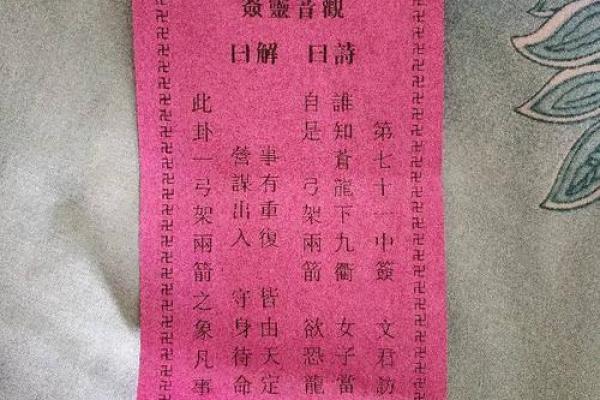 觀音靈簽
詩曰 解曰
第七十一中簽 文君訪
誰知蒼龍下九衢 女子當
自是 弓架兩箭 欲恐龍
事有重復 皆由天定
營謀出入 守身待命
此卦一弓架兩箭之象凡事